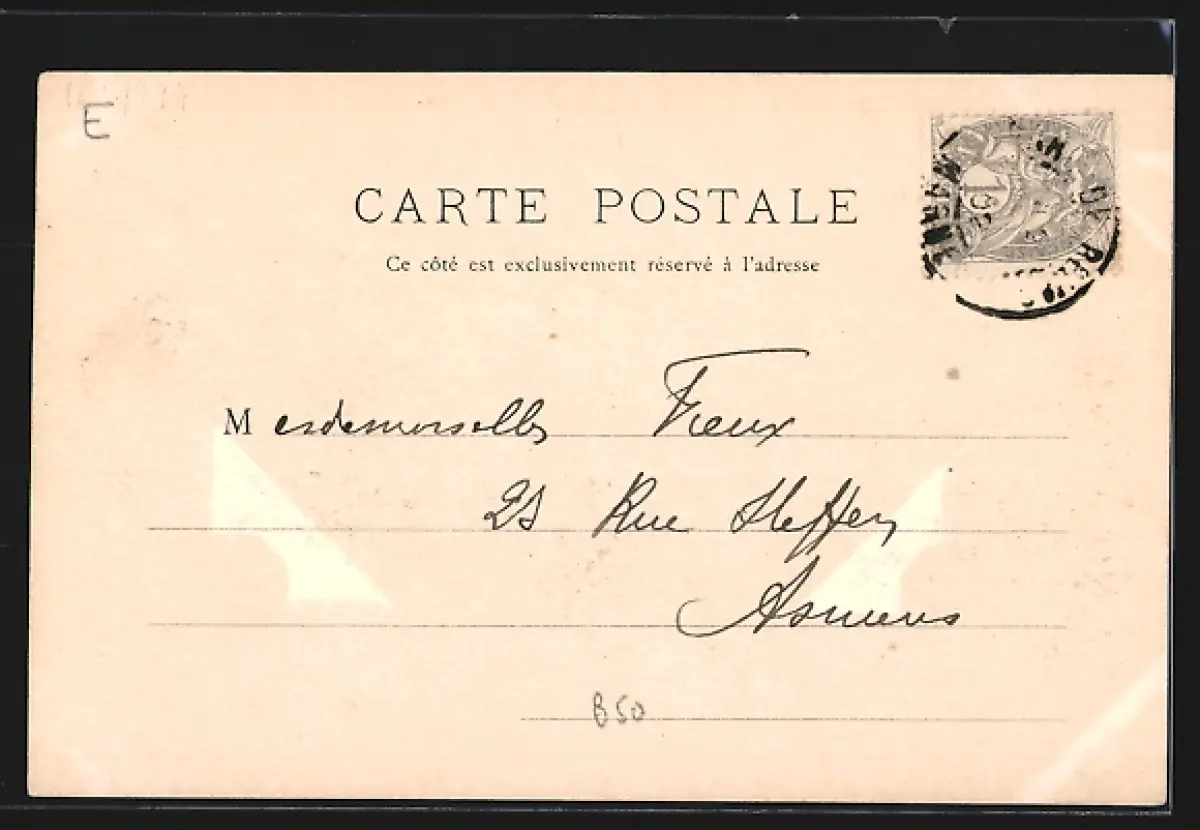 E
CARTE POSTALE
Ce côté est exclusivement réservé à l'adresse
Mesdemoiselles Vieux
25 Rue Steffen
Asnieres
B50